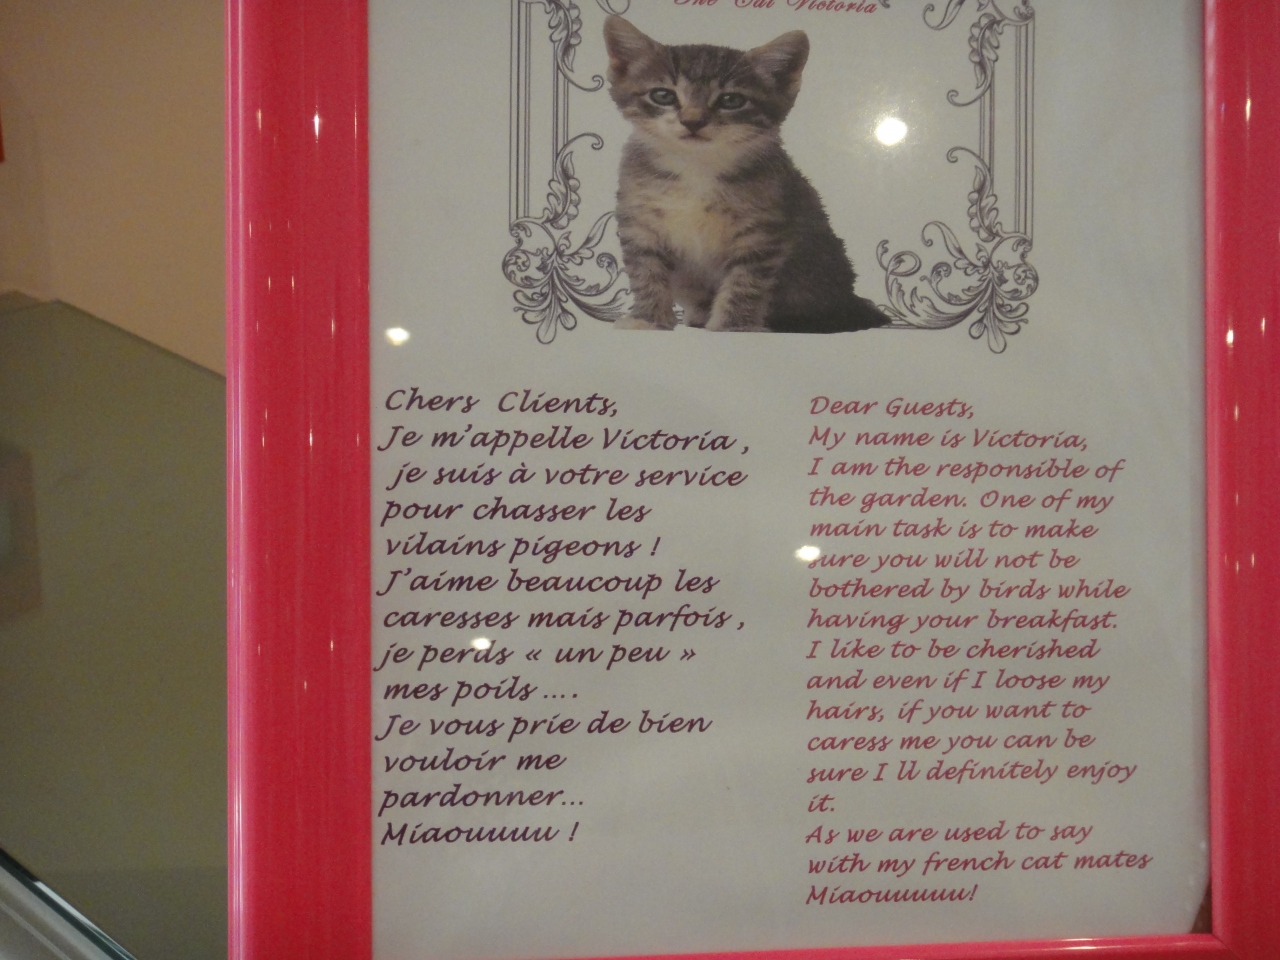 The Cat Victoria
Chers Clients,
Je m'appelle Victoria ,
je suis à votre service
pour chasser les
vilains pigeons !
J'aime beaucoup les
caresses mais parfois ,
je perds « un peu »
mes poils ....
Je vous prie de bien
vouloir me
pardonner...
Miaouuuu !
Dear Guests,
My name is Victoria,
I am the responsible of
the garden. One of my
main task is to make
sure you will not be
bothered by birds while
having your breakfast.
I like to be cherished
and even if I loose my
hairs, if you want to
caress me you can be
sure I ll definitely enjoy
it.
As we are used to say
with my french cat mates
Miaouuuuu!